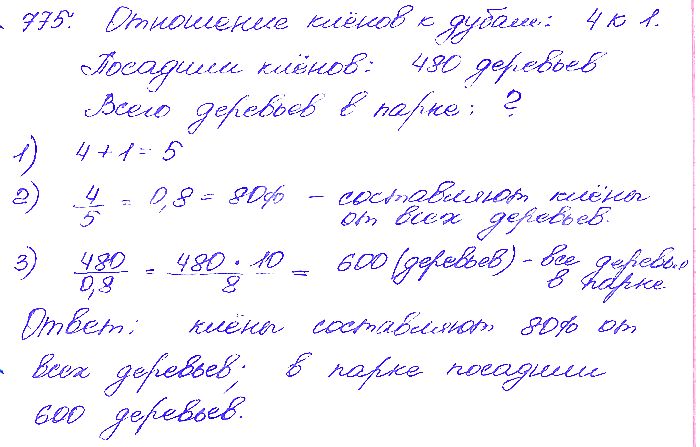 775. Отношение клёнов к дубам: 4 к 1.
Посадили клёнов: 480 деревьев
Всего деревьев в парке: ?
1) 4 + 1 = 5
2) 4/5 = 0,8 = 80% – составляют клёны
от всех деревьев.
3) 480/0,8 = 480 · 10/8 = 600 (деревьев) – все деревья
в парке
Ответ: клёны составляют 80% от
всех деревьев; в парке посадили
600 деревьев.